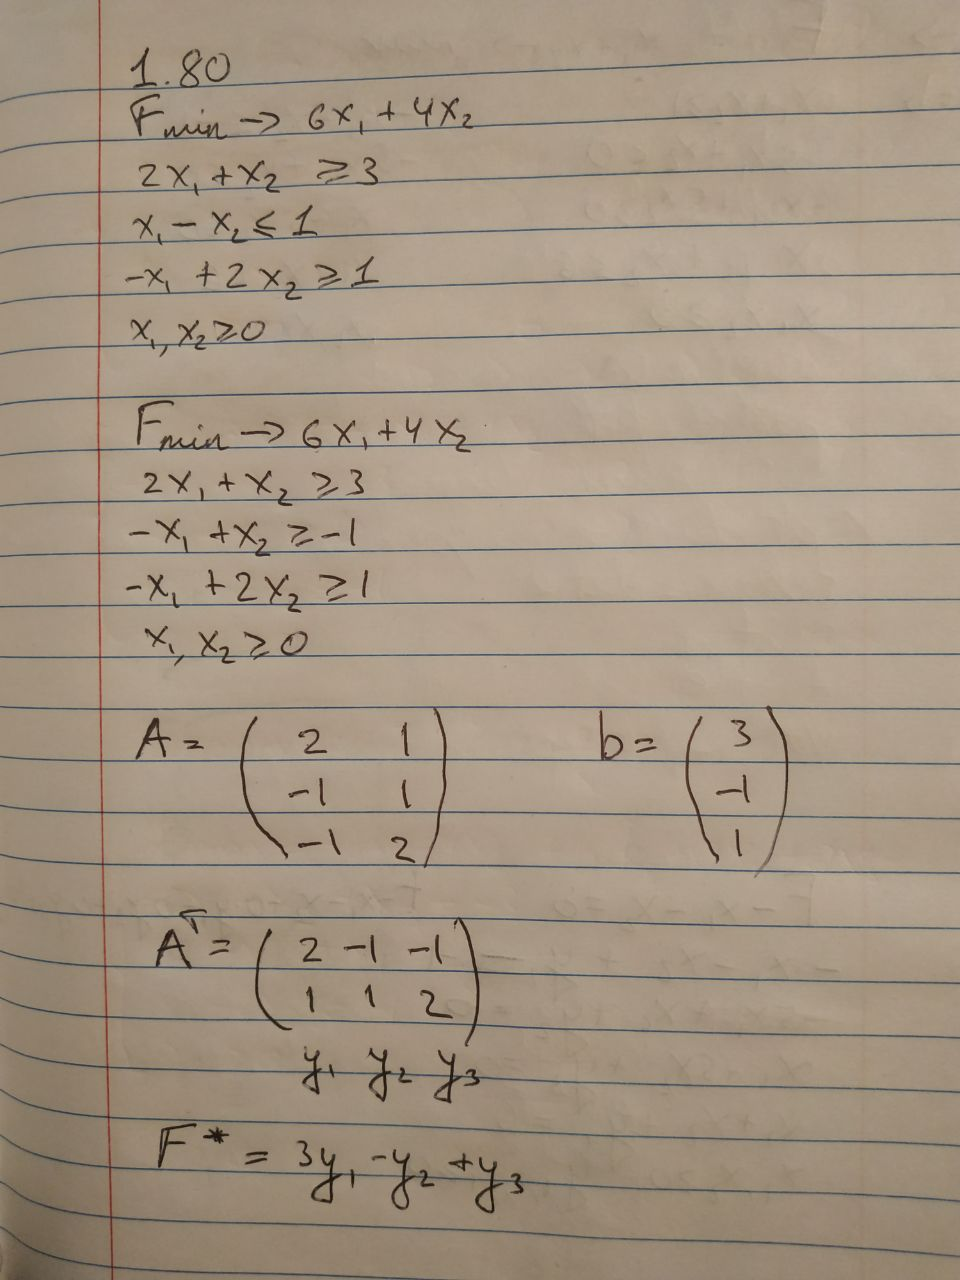 1.80
Fmin → 6x₁ + 4x₂
2x₁ + x₂ ≥ 3
x₁ - x₂ ≤ 1
-x₁ + 2x₂ ≥ 1
x₁, x₂ ≥ 0
Fmin → 6x₁ + 4x₂
2x₁ + x₂ ≥ 3
-x₁ + x₂ ≥ -1
-x₁ + 2x₂ ≥ 1
x₁, x₂ ≥ 0
A = ( 2 1 b = ( 3
-1 1 -1
-1 2 ) 1 )
Aᵀ = ( 2 -1 -1
1 1 2 )
y₁ y₂ y₃
F* = 3y₁ - y₂ + y₃